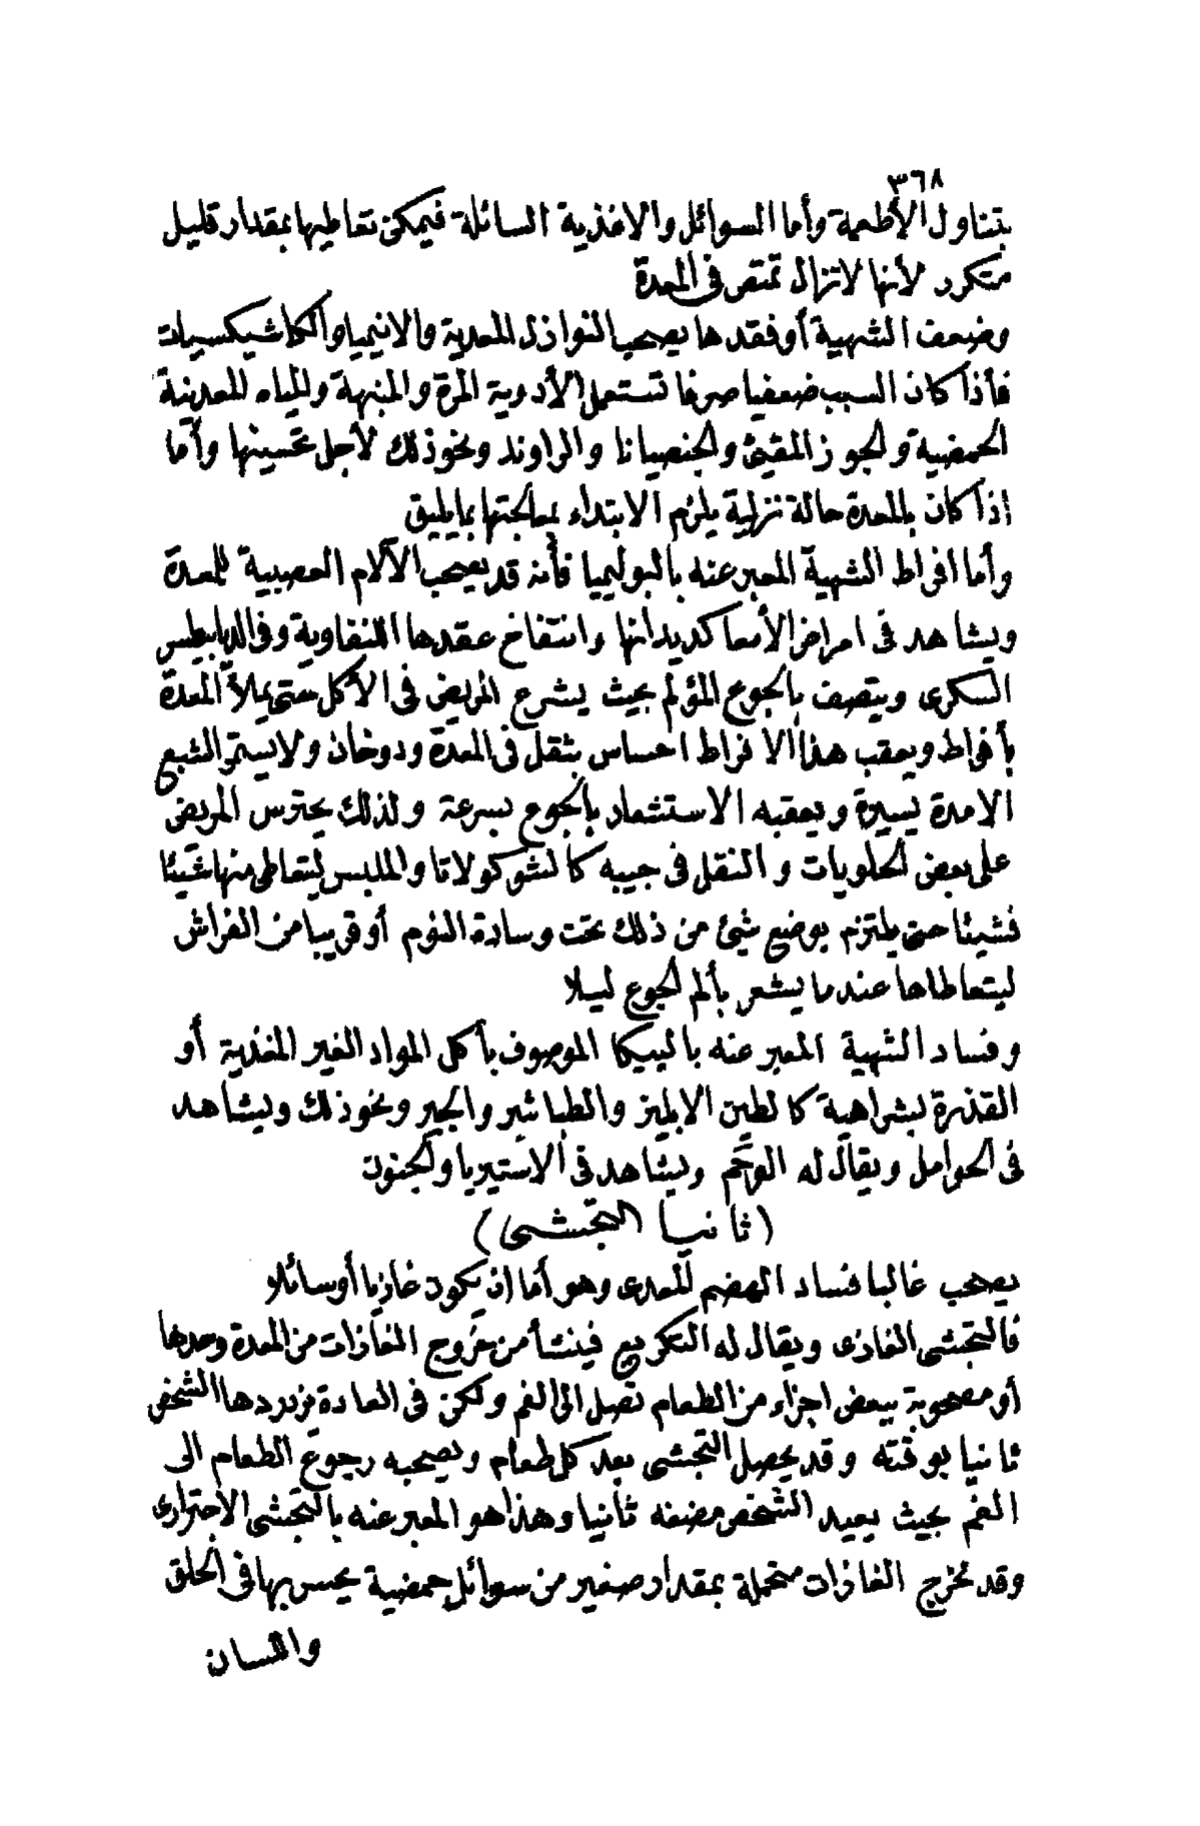 ٣٦٨
بتناول الأطعمة وأما السوائل والاغذية السائلة فيمكن تعاطيها بمقدار قليل
متكرر لأنها لا تزال تمتص فى المعدة
وضعف الشهية أو فقدها يصحب النوازل المعدية والانيميا والكاشيكسيات
فأذا كان السبب ضعفيا صرفا تستعمل الأدوية المرة والمنبهة والمياه المعدنية
الحمضية والجوز المقيئ والجنصيانا والراوند ونحو ذلك لأجل تحسينها وأما
اذا كان بالمعدة حالة نزلية يلزم الابتداء بمعالجتها بما يليق
وأما افراط الشهية المعبر عنه بالبوليميا فأنه قد يصحب الآلام العصبية للمعدة
ويشاهد فى امراض الأمعا كديدانها وانتفاخ عقدها اللنفاوية وفى الديابيطس
السكرى ويتصف بالجوع المؤلم بحيث يشرع المريض فى الأكل حتى يملأ المعدة
بأفراط ويعقب هذا الافراط احساس بثقل فى المعدة ودوخان ولا يستمر الشبع
الا مدة يسيرة ويعقبه الاستشعار بالجوع بسرعة ولذلك يحترس المريض
على بعض الحلويات والنقل فى جيبه كالشوكولاتا والملبس ليتعاطى منها شيئا
فشيئا حتى يلتزم بوضع شئ من ذلك تحت وسادة النوم أو قريبا من الفراش
ليتعاطاها عندما يشعر بألم الجوع ليلا
وفساد الشهية المعبر عنه بالبيكا الموصوف بأكل المواد الغير المغذية أو
القذرة بشراهية كالطين الابليز والطباشير والجير ونحو ذلك ويشاهد
فى الحوامل ويقال له الوحَم ويشاهد فى الاستيريا والجنون
(ثانيا التجشى)
يصحب غالبا فساد الهضم المعدى وهو أما ان يكون غازيا أو سائلا
فالتجشى الغازى ويقال له التكريع فينشأ من خروج الغازات من المعدة وحدها
أو مصحوبة ببعض اجزاء من الطعام تصل الى الفم ولكن فى العادة يزدردها الشخص
ثانيا بوقته وقد يحصل التجشى بعد كل طعام ويصحبه رجوع الطعام الى
الفم بحيث يعيد الشخص مضغه ثانيا وهذا هو المعبر عنه بالتجشى الاجترارى
وقد تخرج الغازات متحملة بمقدار صغير من سوائل حمضية يحس بها فى الحلق
واللسان